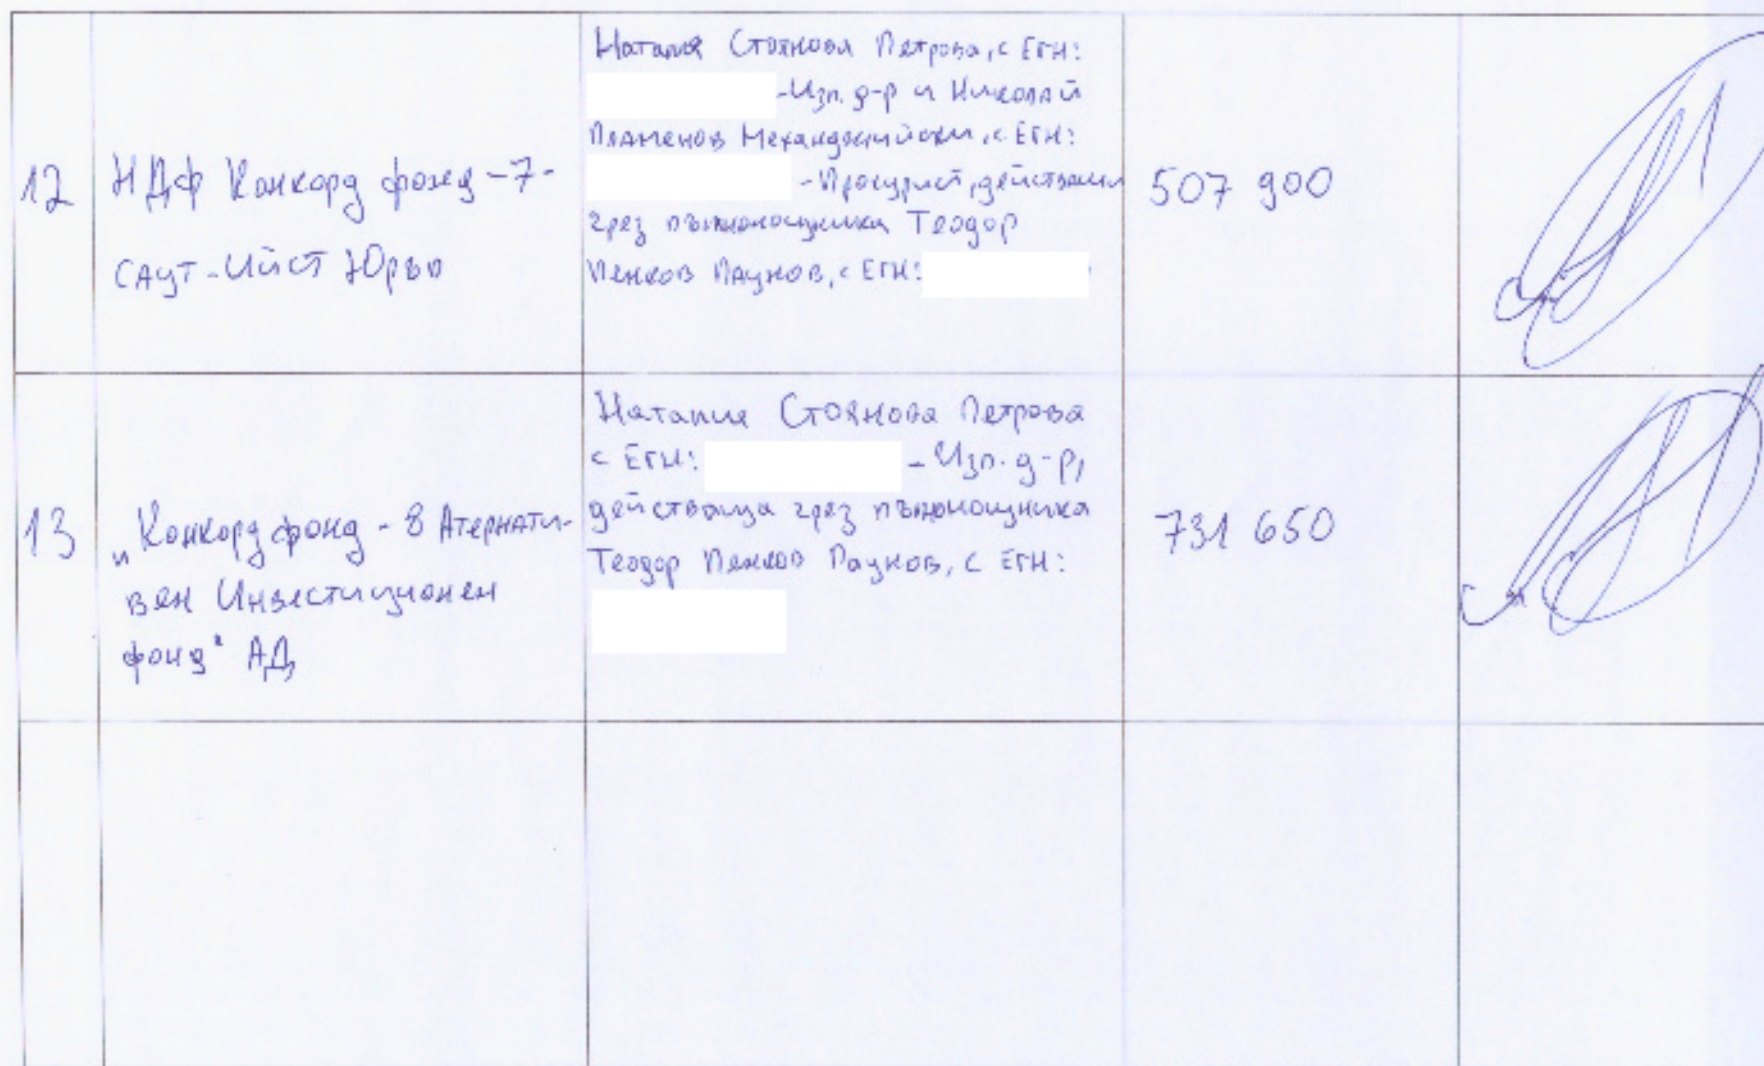 12
НДФ Конкорд фонд -7-
САУТ-ИЙСТ Юръп
Наталия Стоянова Петрова, с ЕГН:
-Изп. д-р и Николай
Пламенов Механджийски, с ЕГН:
-Прокурист, действащи
чрез пълномощника Теодор
Пенков Паунов, с ЕГН:
507 900
13
„Конкорд фонд - 8 Атернати-
вен Инвестиционен
фонд" АД
Наталия Стоянова Петрова
с ЕГН: - Изп. д-р,
действаща чрез пълномощника
Теодор Пенков Паунов, с ЕГН:
731 650